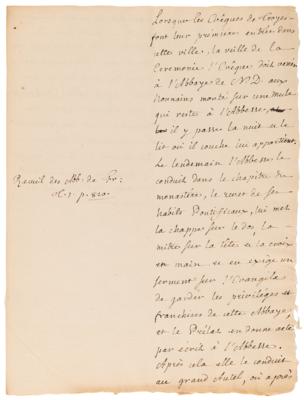 Lorsque les Evêques de Troyes
font leur premiere entrée dans
cette ville, la veille de la
Ceremonie l'Evêque doit venir
à l'Abbaye de N.D. aux
Nonnains monté sur une mule
qui reste à l'Abbesse,
il y passe la nuit et le
lit où il couche lui appartient.
Le lendemain l'Abbesse le
conduit dans le chapitre du
monastère, le revet de ses
habits Pontificaux, lui met
la chappe sur le dos, la
mitre sur la tête et la croix
en main et en exige un
serment sur l'Evangile
de garder les privilèges et
franchises de cette Abbaye,
et le Prélat en donne acte
par écrit à l'Abbesse.
Après cela elle le conduit
au grand Autel, où après
Recueil des Abb. de Fr:
t. 1 p. 820.